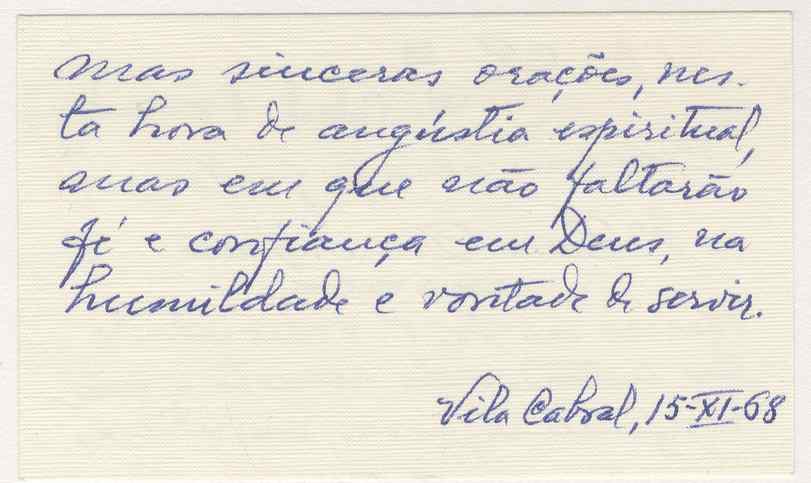 mas sinceras orações, nes-
ta hora de angústia espiritual,
mas em que não faltarão
fé e confiança em Deus, na
humildade e vontade de servir.
Vila Cabral, 15-XI-68